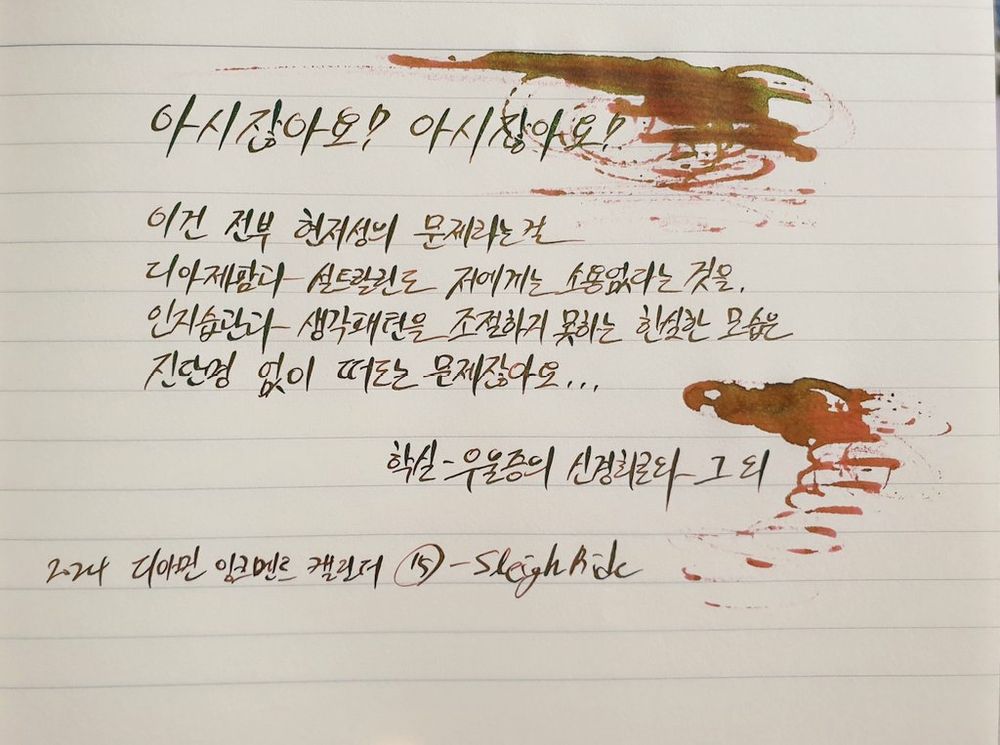 아시잖아요? 아시잖아요?
이건 전부 현저성의 문제라는걸
디아제팜과 설트랄린도 저에게는 소용없다는 것을,
인지습관과 생각패턴을 조절하지 못하는 한심한 모습은
진단명 없이 떠도는 문제잖아요...
학실-우울증의 신경회로와 그 외
2024 디아민 잉크멘트 캘린더 ⑮ - Sleigh Ride